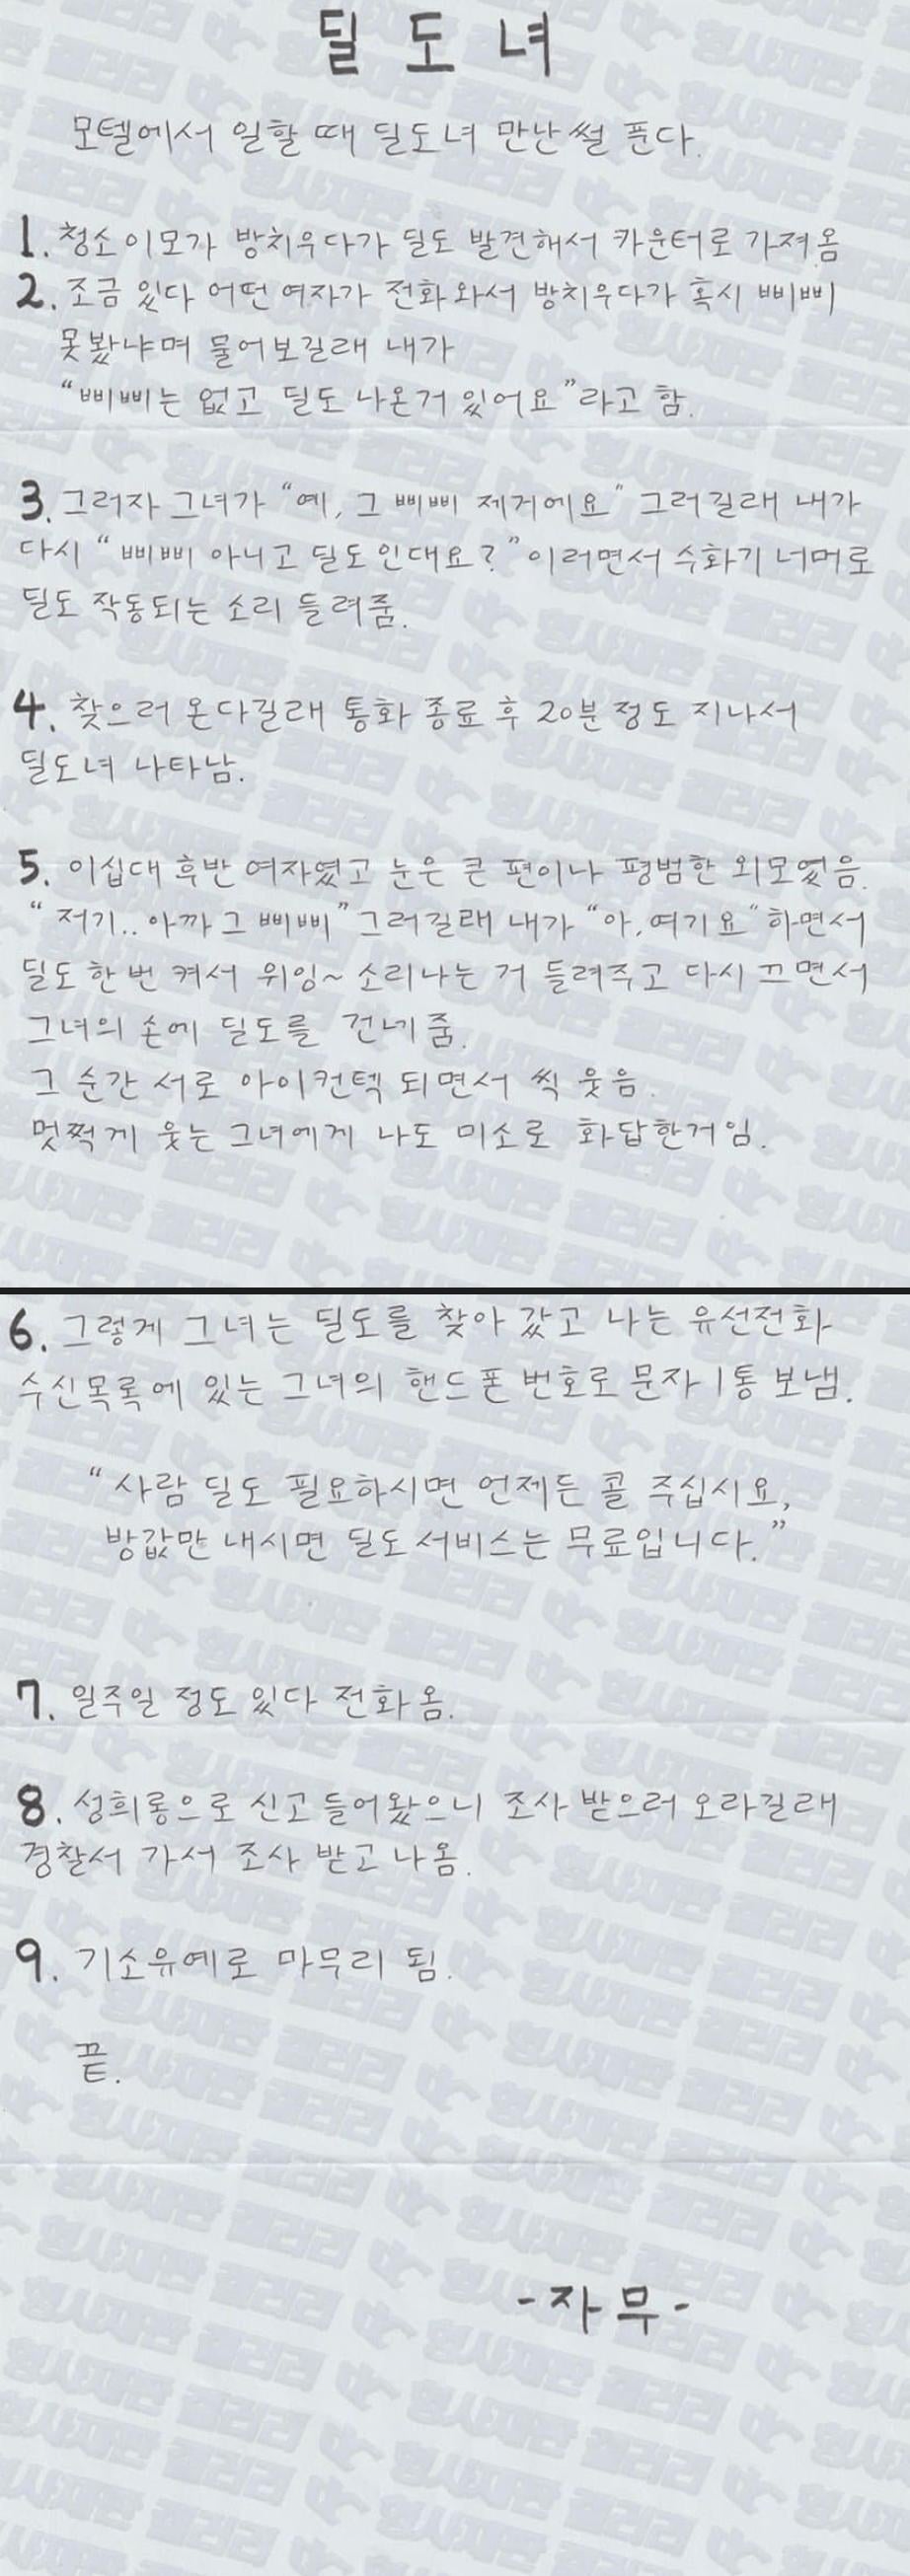 딜도녀
모텔에서 일할 때 딜도녀 만난 썰 푼다.
1. 청소 이모가 방치우다가 딜도 발견해서 카운터로 가져옴
2. 조금 있다 어떤 여자가 전화 와서 방치우다가 혹시 삐삐
못봤냐며 물어보길래 내가
"삐삐는 없고 딜도 나온거 있어요"라고 함.
3. 그러자 그녀가 "예, 그 삐삐 제거에요" 그러길래 내가
다시 "삐삐 아니고 딜도인대요?"이러면서 수화기 너머로
딜도 작동되는 소리 들려줌.
4. 찾으러 온다길래 통화 종료 후 20분 정도 지나서
딜도녀 나타남.
5. 이십대 후반 여자였고 눈은 큰 편이나 평범한 외모였음.
"저기.. 아까 그 삐삐" 그러길래 내가 "아, 여기요" 하면서
딜도 한번 켜서 위잉~ 소리나는 거 들려주고 다시 끄면서
그녀의 손에 딜도를 건네줌.
그 순간 서로 아이컨텍 되면서 씩 웃음.
멋쩍게 웃는 그녀에게 나도 미소로 화답한거임.
6. 그렇게 그녀는 딜도를 찾아 갔고 나는 유선전화
수신목록에 있는 그녀의 핸드폰 번호로 문자 1통 보냄.
"사람 딜도 필요하시면 언제든 콜 주십시요,
방값만 내시면 딜도 서비스는 무료입니다."
7. 일주일 정도 있다 전화 옴.
8. 성희롱으로 신고 들어왔으니 조사 받으러 오라길래
경찰서 가서 조사 받고 나옴.
9. 기소유예로 마무리 됨.
끝.
-자무-